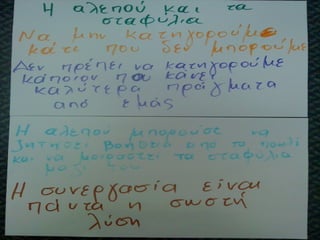 Η αλεπού και τα
σταφύλια
Να μην κατηγορούμε
κάτι που δεν μπορούμε
Δεν πρέπει να κατηγορούμε
κάποιον που κάνει
καλύτερα πράγματα
από εμάς
Η αλεπού μπορούσε να
ζητήσει βοήθεια από το πουλί
και να μοιραστεί τα σταφύλια
μαζί του
Η συνεργασία είναι
πάντα η σωστή
λύση